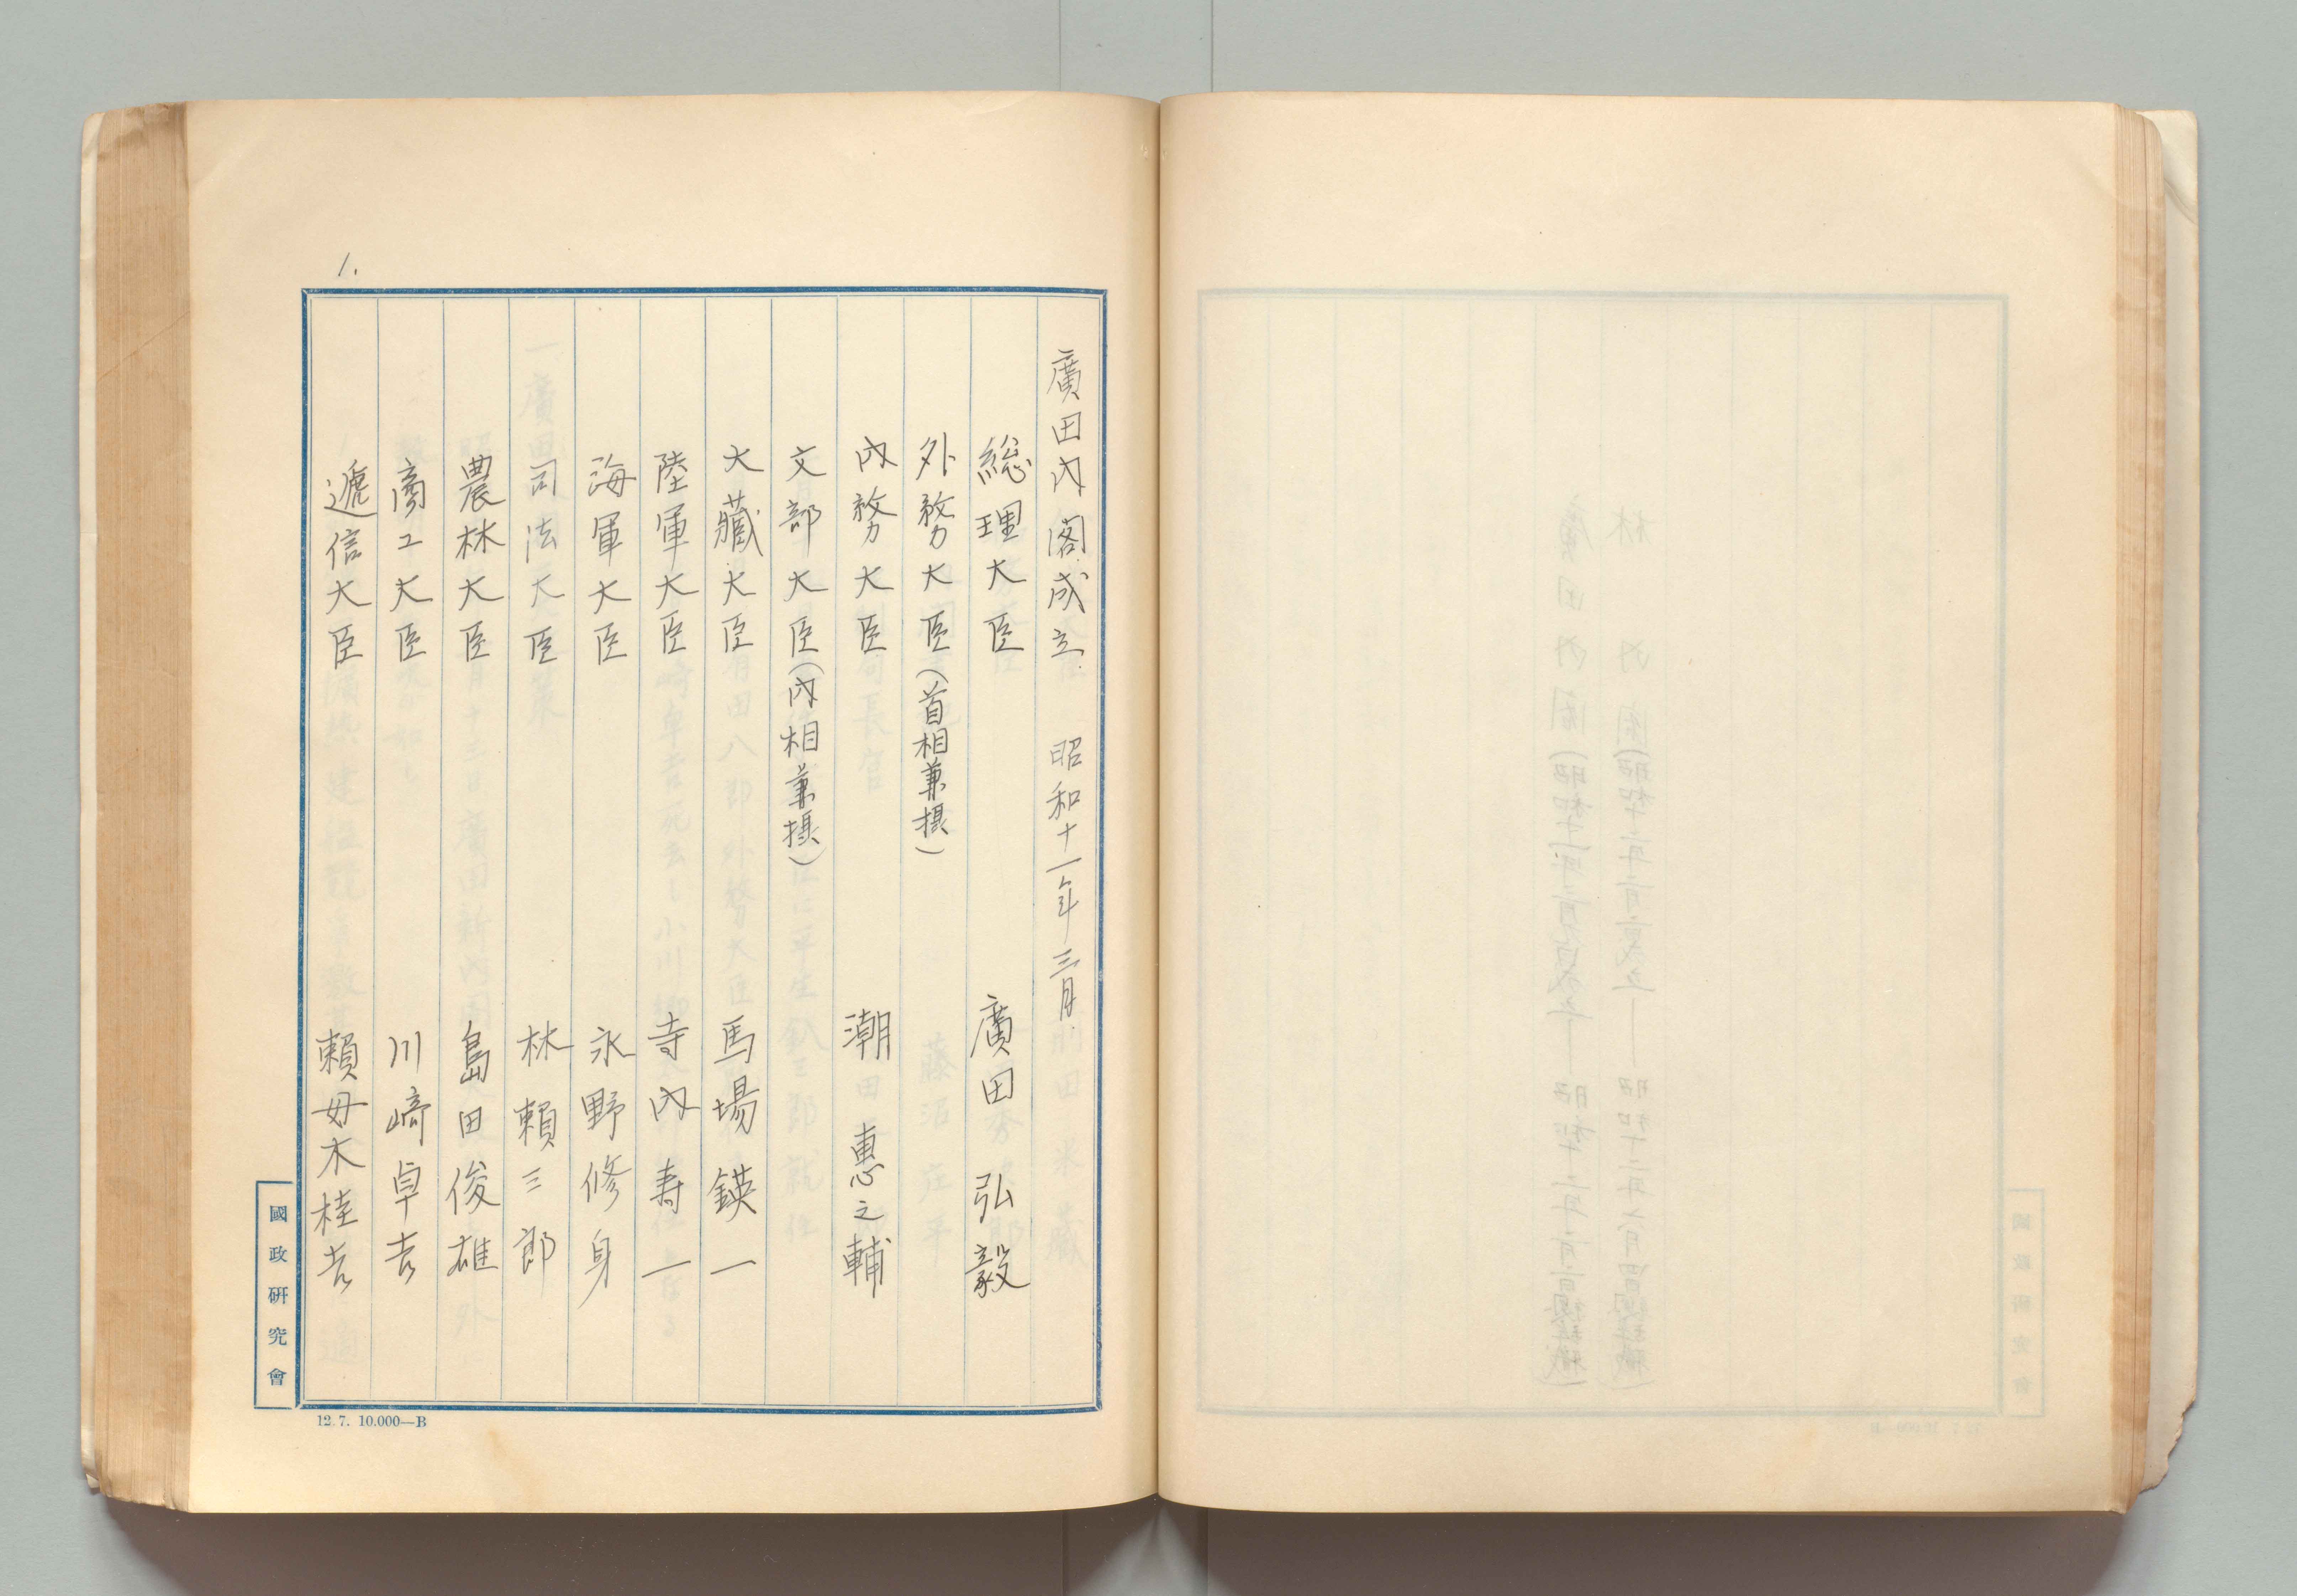 1.
廣田内閣成立 昭和十一年三月
総理大臣 廣田弘毅
外務大臣(首相兼摂)
内務大臣 潮恵之輔
文部大臣(内相兼摂)
大藏大臣 馬場鍈一
陸軍大臣 寺内寿一
海軍大臣 永野修身
司法大臣 林頼三郎
農林大臣 島田俊雄
商工大臣 川崎卓吉
遞信大臣 頼母木桂吉
國政研究會
12.7. 10.000—B